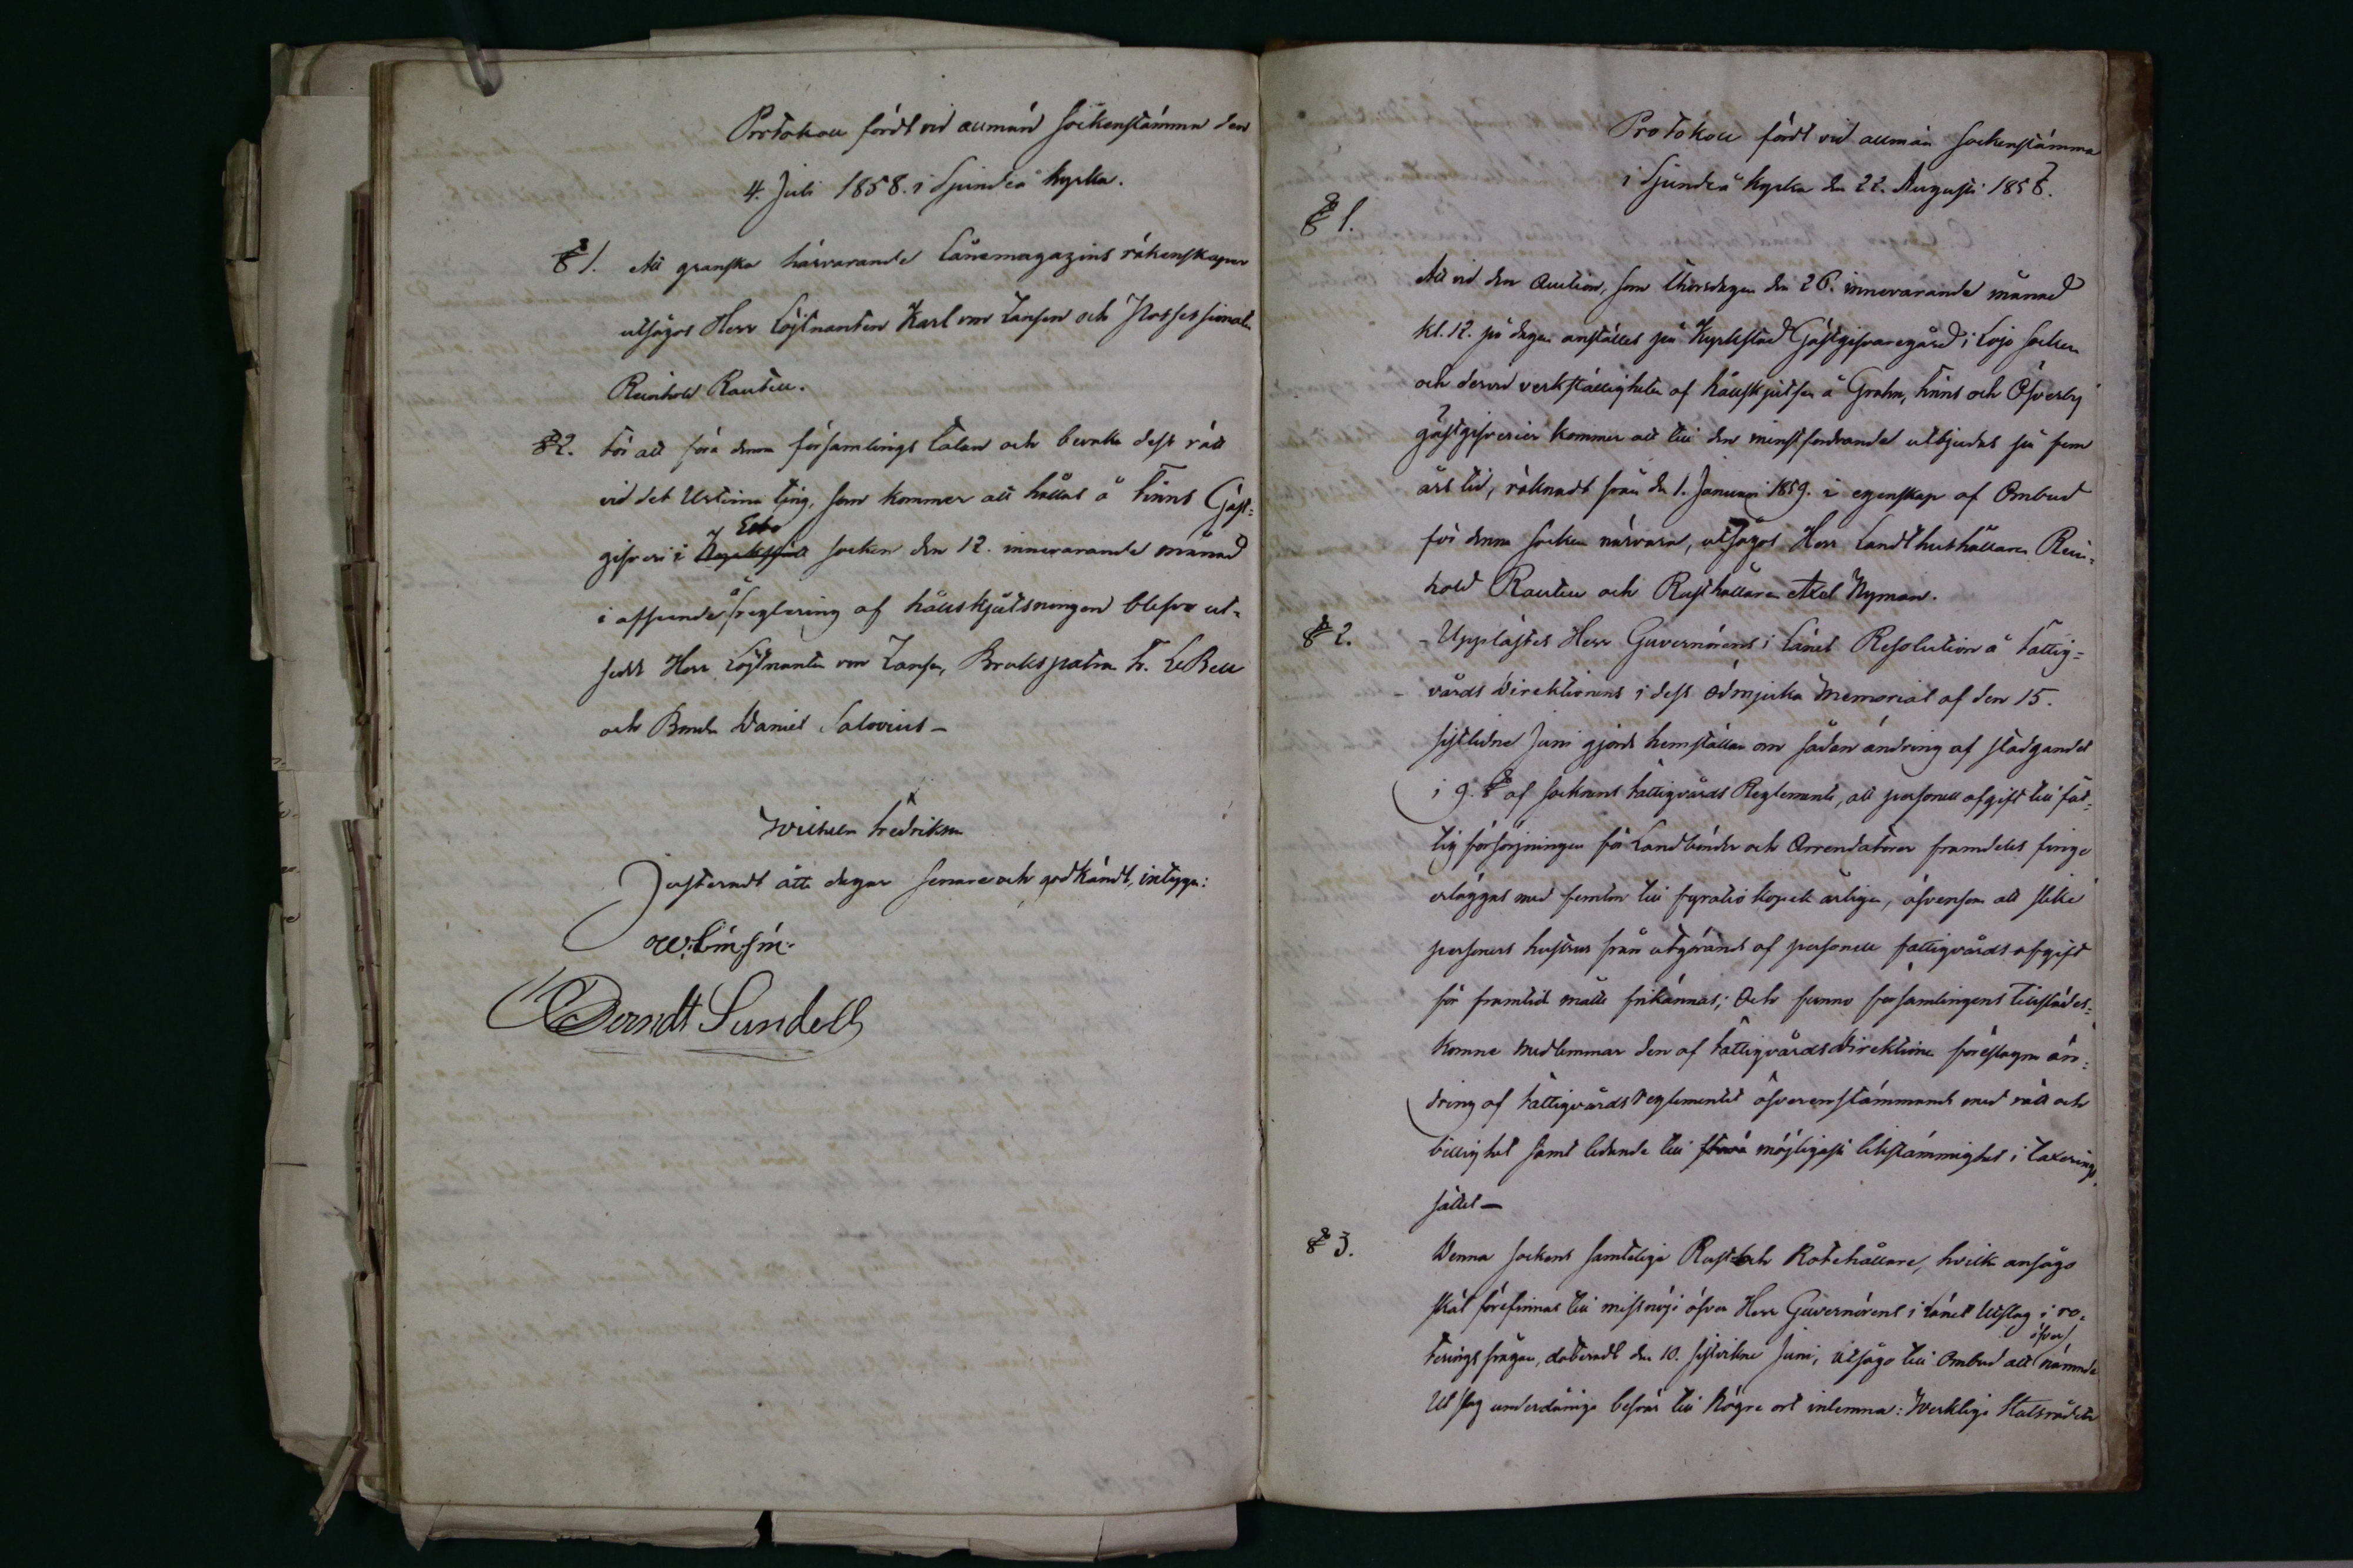 Protokoll fördt vid allmän sockenstämma den
4. Juli 1858. i Sjundeå kyrka.
§ 1. Att granska härvarande Lånemagazins räkenskaper
utsågos Herr Löjtnanten Karl von Zansen och Possessionaten
Reinhold Rautell.
§ 2. För att föra denna församlings talan och bevaka dess rätt
vid det Urtima ting, som kommer att hållas å Finns Gäst-
gifveri i Esbo socken den 12. innevarande månad
i afseende å reglering af hållskjutsningen blefvo ut-
sedde Herr Löjtnanten von Zansen, Brukspatron F. LeBell
och Bonden Daniel Salovius –
Wilhelm Fredrikson
Justeradt åtta dagar senare och godkändt, intyga:
Berndt Sundell
Protokoll fördt vid allmän sockenstämma
i Sjundeå kyrka den 22. Augusti 1858.
§ 1.
Att vid den Auction, som Thorsdagen den 26. innevarande månad
kl. 12. på dagen anställes på Kyrkstad Gästgifvaregård i Lojo socken
och dervid verkställigheten af hållskjutsen å Grahn, Finns och Öfverby
gästgifverier kommer att till den minstfordrande utbjudas på fem
års tid, räknadt från den 1. Januari 1859. i egenskap af Ombud
för denna socken närvara, utsågos Herr Landthushållaren Rein-
hold Rautell och Rusthållaren Axel Nyman.
§ 2. – Upplästes Herr Guvernörens i Länet Resolution å Fattig-
vårds Direktionens i dess ödmjuka Memorial af den 15.
sistlidne Juni gjorda hemställan om sådan ändring af stadgandet
i 9. § af socknens Fattigvårds Reglemente, att personell afgift till fat-
tig försörjningen för Landbönder och Arrendatorer framdeles finge
erläggas med femton till fyratio kopek årligen, äfvensom att slike
personers hustrur från utgörande af personell fattigvårds afgift
för framtid måtte frikännas; Och funno församlingens tillstädes-
komne medlemmar den af Fattigvårds Direktionen föreslagna än-
dring af Fattigvårds reglementet öfverensstämmande med rätt och
billighet samt ledande till möjligaste likstämmighet i taxerings
sättet –
§ 3. Denna sockens samtelige Rust och Rotehållare, hvilke ansågo
skäl förefinnas till missnöje öfver Herr Guvernörens i Länet Utslag i ro-
terings frågan, dateradt den 10. sistvikne Juni, utsågo till Ombud att öfver nämnde
Utslag underdåniga besvär till högre ort inlemna: Verklige Statsrådet